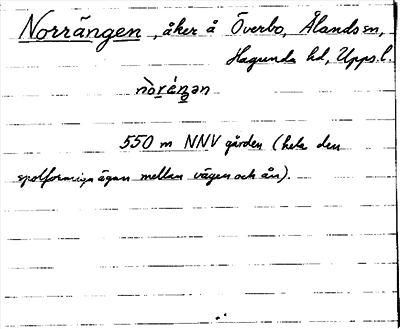 Norrängen, åker å Överbo, Ålands sn,
Hagunda hd, Upps.l.
nòṟáṉ̱ən
550 m NNV gården (hela den
spolformiga ägan mellan vägen och ån).